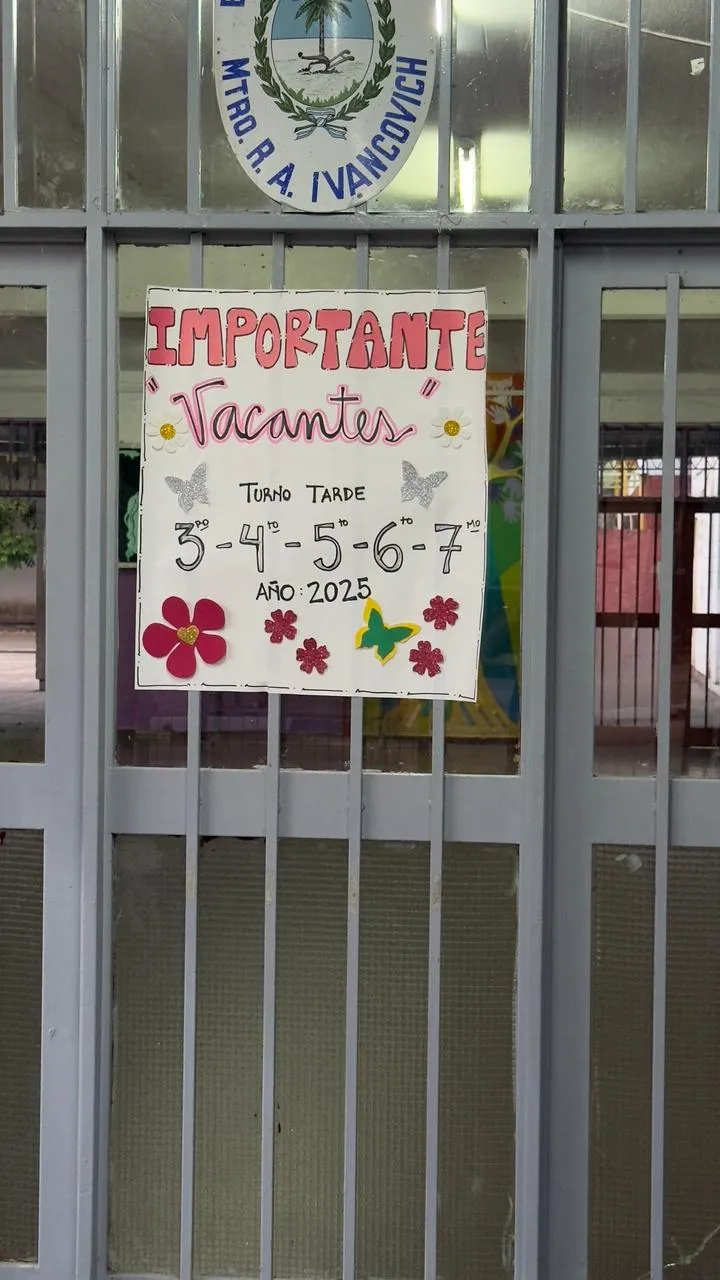 MTRO. R. A. IVANCOVICH
IMPORTANTE
"Vacantes"
TURNO TARDE
3ro - 4to - 5to - 6to - 7mo
AÑO: 2025